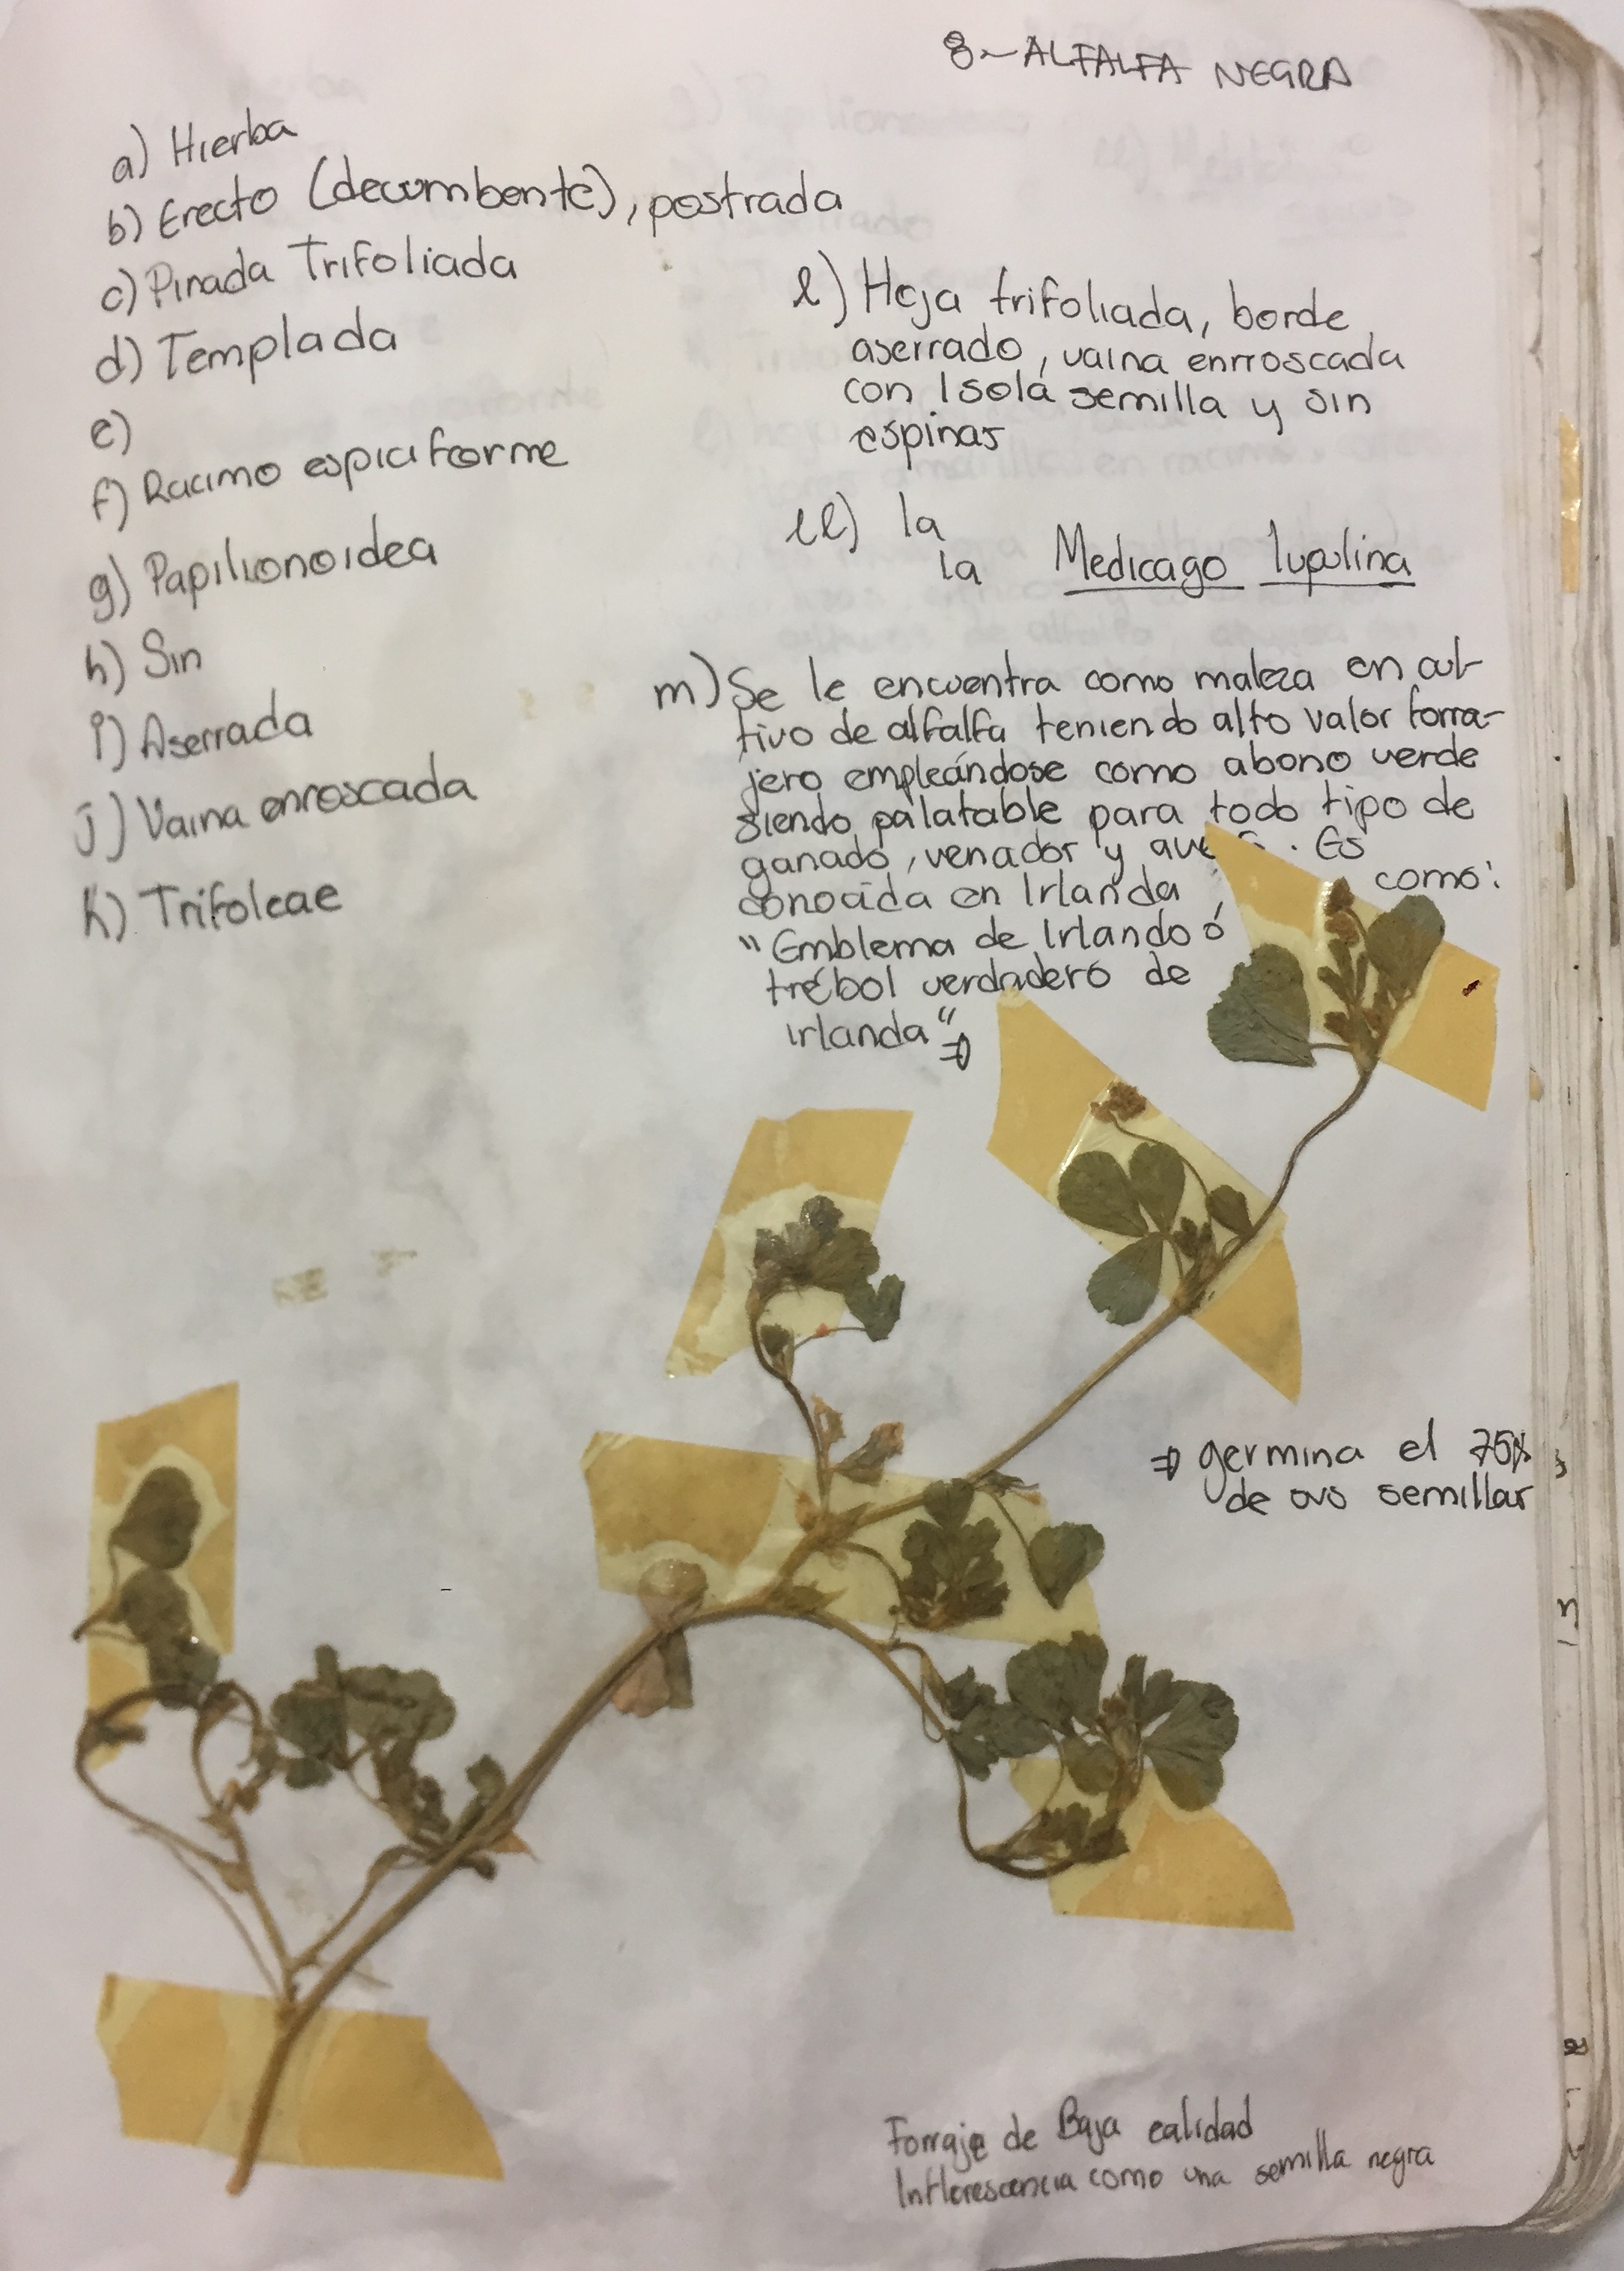 8-ALFALFA NEGRA
a) Hierba
b) Erecto (decumbente), postrada
c) Pinada Trifoliada
d) Templada
e)
f) Racimo espiciforme
g) Papilionoidea
h) Sin
i) Aserrada
j) Vaina enroscada
k) Trifoleae
l) Hoja trifoliada, borde
aserrado, vaina enrroscada
con 1 sola semilla y sin
espinas
ll) la
la Medicago lupulina
m) Se le encuentra como maleza en cul-
tivo de alfalfa teniendo alto valor forra-
jero empleándose como abono verde
siendo palatable para todo tipo de
ganado, venador y aves. Es
conocida en Irlanda, como:
"Emblema de Irlando ó
trébol verdadero de
irlanda" ⇒
⇒ germina el 75%
de sus semillas
Forraje de Baja calidad
Inflorescencia como una semilla negra